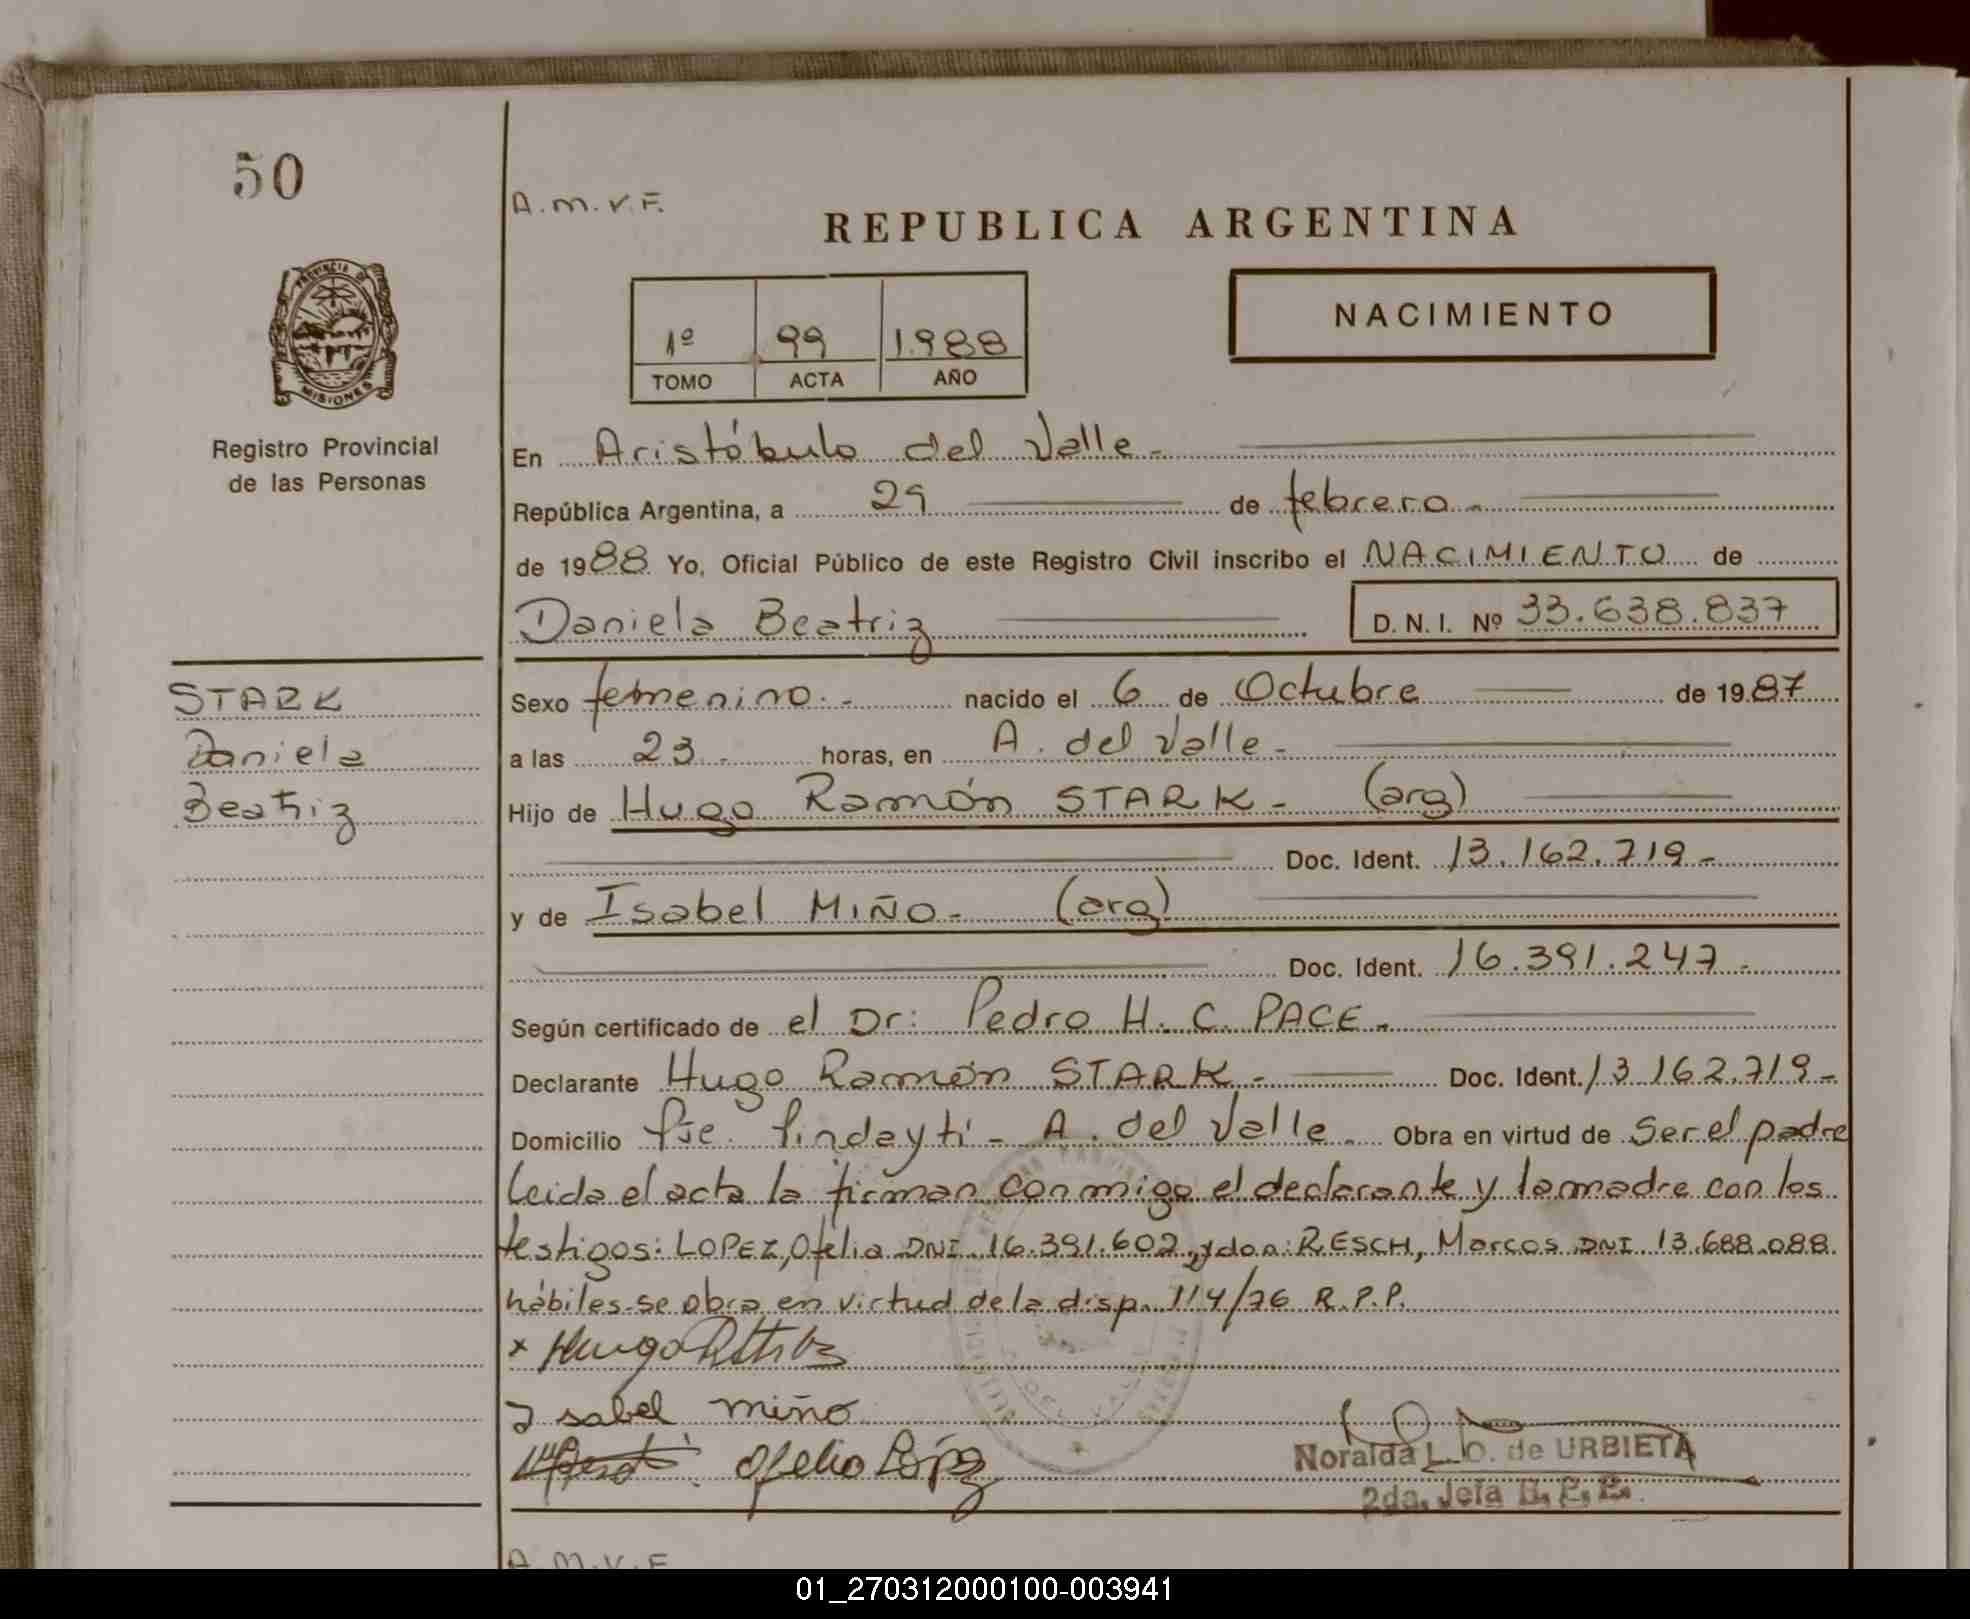 50
A.M.V.F.
REPUBLICA ARGENTINA
1º 99 1.988
TOMO ACTA AÑO
NACIMIENTO
PROVINCIA DE
MISIONES
Registro Provincial
de las Personas
En Aristóbulo del Valle.-
República Argentina, a 29 de febrero.-
de 1988 Yo, Oficial Público de este Registro Civil inscribo el NACIMIENTO de
Daniela Beatriz D. N. I. Nº 33.638.837
STARK
Daniela
Beatriz
Sexo femenino.- nacido el 6 de Octubre de 1987
a las 23.- horas, en A. del Valle.-
Hijo de Hugo Ramón STARK.- (arg)
Doc. Ident. 13.162.719.-
y de Isabel MIÑO.- (arg)
Doc. Ident. 16.391.247.-
Según certificado de el Dr: Pedro H. C. PACE.-
Declarante Hugo Ramón STARK.- Doc. Ident. 13.162.719.-
Domicilio Pindayti- A. del Valle.- Obra en virtud de Ser el padre
leida el acta la firman conmigo el declarante y la madre con los
testigos: LOPEZ, Ofelia DNI 16.391.602, y don: RESCH, Marcos DNI 13.688.088
hábiles-se obra en virtud de la disp. 114/76 R.P.P.
x Hugo
Isabel miño
Ofelia López
Noralda L. O. de URBIETA
2da. Jefa R. P. P.
A.M.V.F
01_270312000100-003941